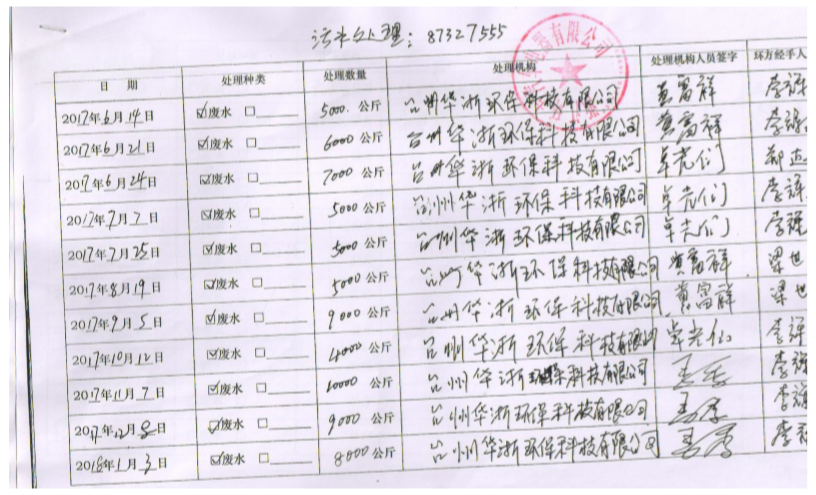 污水处理:87327555
日 期 处理种类 处理数量 处理机构 处理机构人员签字 环方经手人
2017年6月14日 ☑废水 □ 5000 公斤 台州华浙环保科技有限公司 黄富祥
2017年6月21日 ☑废水 □ 6000 公斤 台州华浙环保科技有限公司 黄富祥
2017年6月24日 ☑废水 □ 7000 公斤 台州华浙环保科技有限公司
2017年7月7日 ☑废水 □ 5000 公斤 台州华浙环保科技有限公司
2017年7月25日 ☑废水 □ 5000 公斤 台州华浙环保科技有限公司
2017年8月19日 ☑废水 □ 5000 公斤 台州华浙环保科技有限公司 黄富祥
2017年9月5日 ☑废水 □ 9000 公斤 台州华浙环保科技有限公司 黄富祥
2017年10月12日 ☑废水 □ 公斤 台州华浙环保科技有限公司
2017年11月7日 ☑废水 □ 公斤 台州华浙环保科技有限公司
2017年12月8日 ☑废水 □ 9000 公斤 台州华浙环保科技有限公司
2018年1月3日 ☑废水 □ 8000 公斤 台州华浙环保科技有限公司